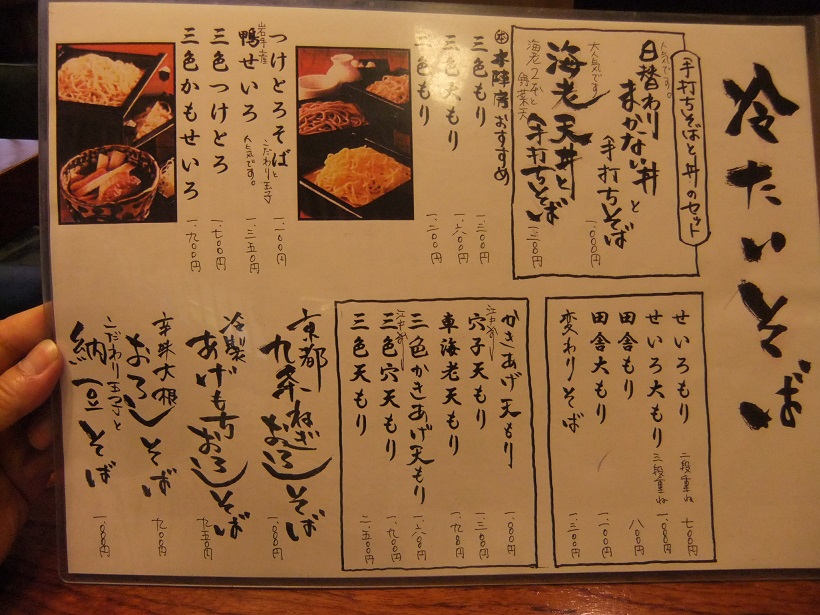 冷たいそば
手打ちそばと丼のセット
人気です。
日替わりまかない丼と手打ちそば
一、〇〇〇円
大人気です
海老天丼と手打ちそば
海老2本と野菜天
一、三〇〇円
本陣房おすすめ
三色もり 一、三〇〇円
三色大もり 一、六〇〇円
二色もり 一、二〇〇円
つけとろそば とこだわり玉子 一、一〇〇円
岩手産
鴨せいろ 人気です。 一、三五〇円
三色つけとろ 一、七〇〇円
三色かもせいろ 一、九〇〇円
せいろもり 二段重ね 七〇〇円
せいろ大もり 三段重ね 一、〇八〇円
田舎もり 八〇〇円
田舎大もり 一、一〇〇円
変わりそば 一、三〇〇円
かきあげ天もり 一、〇〇〇円
江戸前
穴子天もり 一、三〇〇円
車海老天もり 一、九八〇円
三色かきあげ天もり 一、六八〇円
江戸前
三色穴天もり 一、九〇〇円
三色天もり 二、五〇〇円
京都
九条ねぎおろしそば 一、〇八〇円
冷製
あげもちおろしそば 九五〇円
辛味大根
おろしそば 九〇〇円
こだわり玉子と
納豆そば 一、〇〇〇円